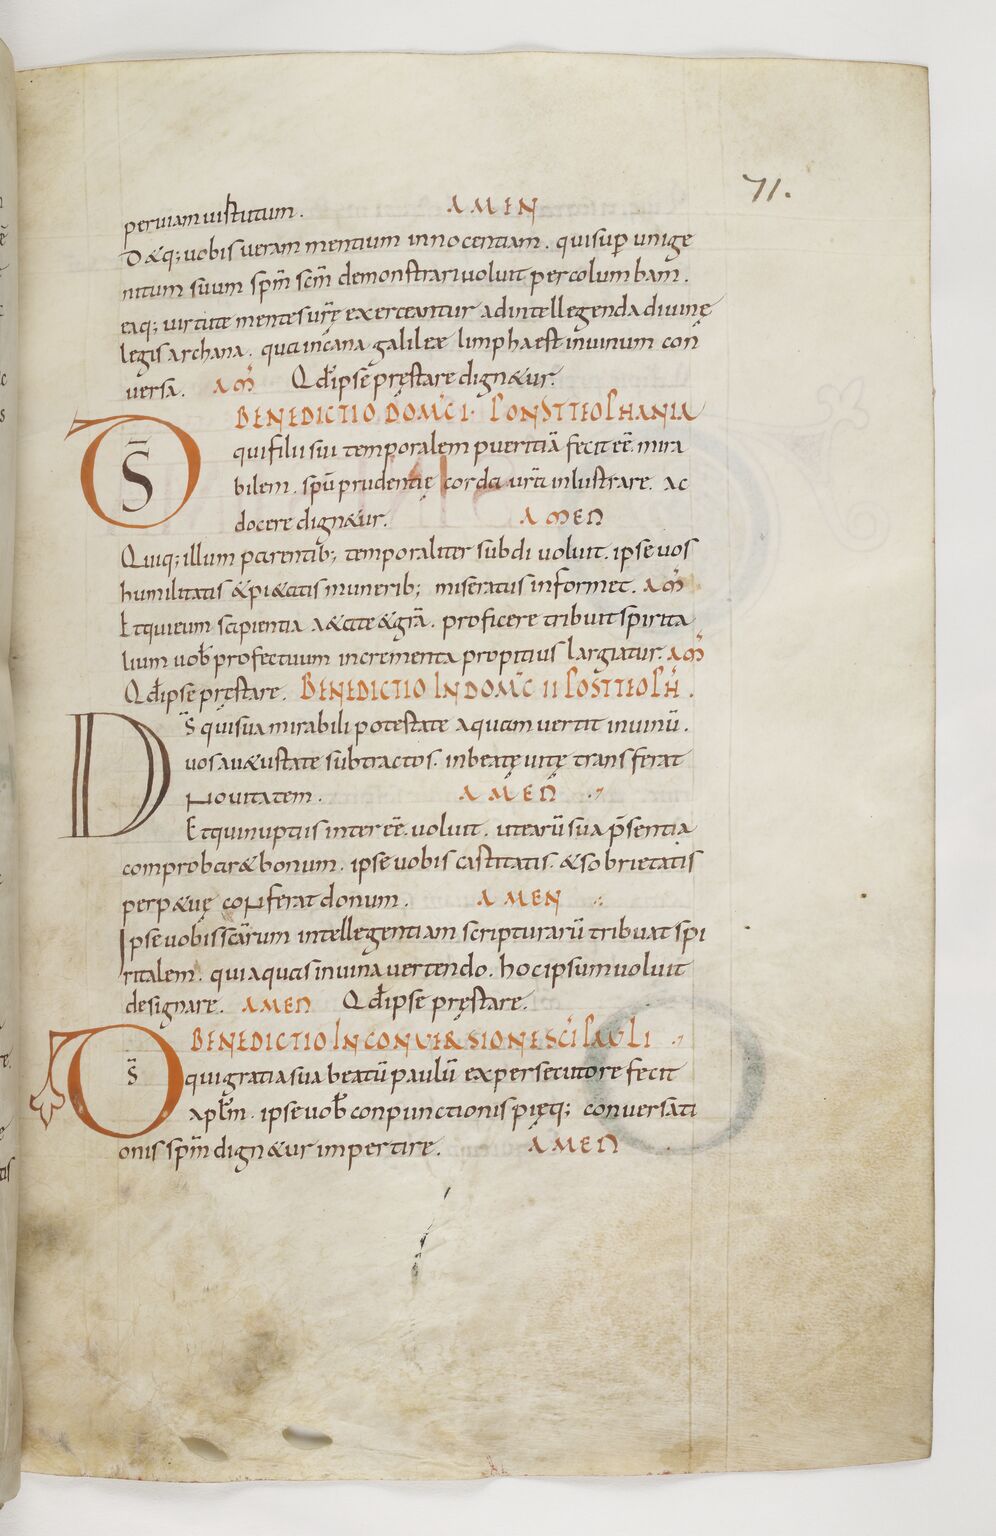 71.
peruiam uirtutum. AMEN
D&q; uobis ueram mentium innocentiam. qui sup̄ unige
nitum suum sp̄m sc̄m demonstrari uoluit per colum bam.
eaq; uirtute mentes ur̄ę exerceantur ad intellegenda diuinę
legis archana. qua in cana galileę limpha est in uinum con
uersa. AM̄ Qd̄ ipse pręstare dign&ur.
BENEDICTIO DOM̄C I. POST TEOPHANIA
D S̄ qui filii sui temporalem pueritiā fecit eē mira
bilem. spū prudentię corda ur̄a inlustrare. ac
docere dign&ur. AMEN
Quiq; illum parentib; temporaliter subdi uoluit. ipse uos
humilitatis & pi&atis munerib; miseratus informet. AM̄
Et qui eum sapientia a&ate & gr̄a. proficere tribuit spirita
lium uob̄ profectuum incrementa propitius largiatur. AM̄
Qd̄ ipse pręstare. BENEDICTIO IN DOM̄C II POST TEOPH̄.
D S̄ qui sua mirabili potestate aquam uertit in uinū.
uos a u&ustate subtractos. in beatę uitę transferat
nouitatem. AMEN
Et qui nuptiis inter eē uoluit. ut earū sua p̄sentia
comprobar& bonum. ipse uobis castitatis. & sobrietatis
perp&uę conferat donum. AMEN
Ipse uobis sc̄arum intellegentiam scripturarū tribuat spi
ritalem. qui aquas in uina uertendo. hoc ipsum uoluit
designare. AMEN Qd̄ ipse pręstare.
BENEDICTIO IN CONVERSIONE SC̄I PAVLI
D S̄ qui gratia sua beatū paulū ex persecutore fecit
apl̄m. ipse uob̄ conpunctionis pięq; conuersati
onis sp̄m dign&ur impertire. AMEN